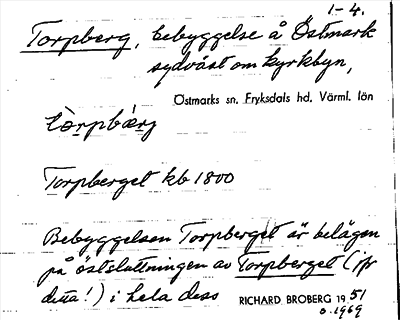 1-4.
Torpberg, bebyggelse å Östmark
sydväst om kyrkbyn,
Östmarks sn. Fryksdals hd. Värml. län
tòrpbǽrg
Torpberget kb 1800
Bebyggelsen Torpberget är belägen
på östsluttningen av Torpberget (jfr
detta!) i hela dess
RICHARD BROBERG 1951
o. 1969